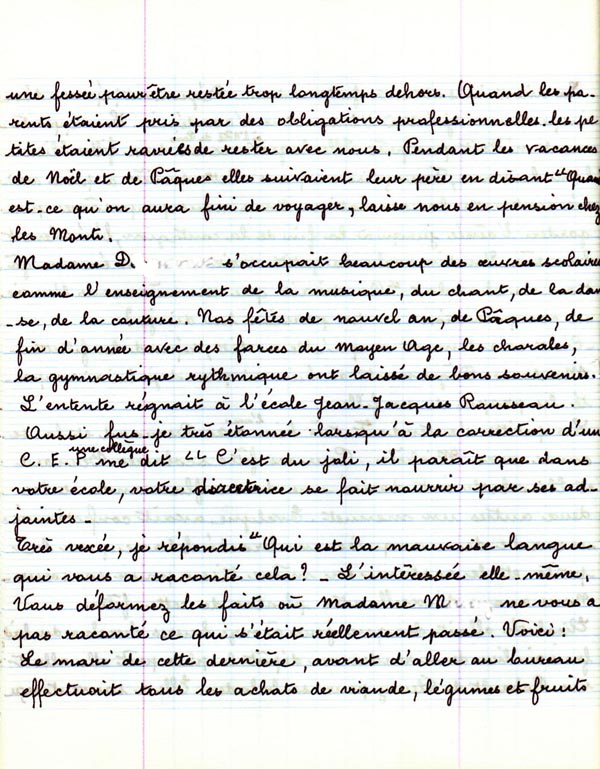 une fessée pour être restée trop longtemps dehors. Quand les pa-
rents étaient pris par des obligations professionnelles. les pe
tites étaient raviesde rester avec nous. Pendant les vacances
de Noël et de Pâques elles suivaient leur père en disant "Quan
est-ce qu'on aura fini de voyager, laisse nous en pension chez
les Monts.
Madame D. s'occupait beaucoup des œuvres scolaires
comme l'enseignement de la musique, du chant, de la dan
-se, de la couture. Nos fêtes de nouvel an, de Pâques, de
fin d'année avec des farces du Moyen Age, les chorales,
la gymnastique rythmique ont laissé de bons souvenirs.
L'entente régnait à l'école Jean-Jacques Rousseau.
Aussi fus-je très étonnée lorsqu'à la correction d'un
une collègue
C.E.P me dit " C'est du joli, il paraît que dans
votre école, votre directrice se fait nourrir par ses ad-
jointes -
Très vexée, je répondis "Qui est la mauvaise langue
qui vous a raconté cela? - L'intéressée elle-même.
Vous déformez les faits où Madame M ne vous a
pas raconté ce qui s'était réellement passé. Voici:
Le mari de cette dernière, avant d'aller au bureau
effectuait tous les achats de viande, légumes et fruits